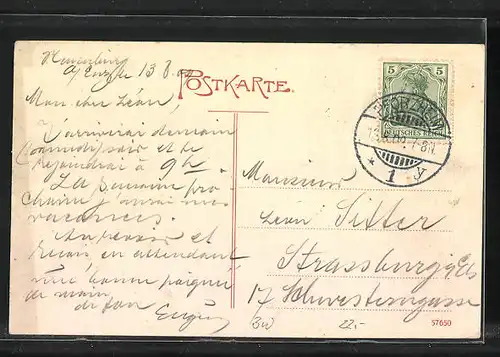 Neuenbürg
13 8
POSTKARTE.
Mon cher Léon,
J'arriverai demain
(samedi) soir et te
rejoindrai à 9h
La semaine pro
chaine j'aurai mes
vacances.
Au revoir et
reçois en attendant
une bonne poignée
de main
de ton
Eugène
5 5
DEUTSCHES REICH
PFORZHEIM
7-8N.
* 1
Monsieur
Léon Sitter
Strassburg i/Els
17 Schwesterngasse
22.-
57650